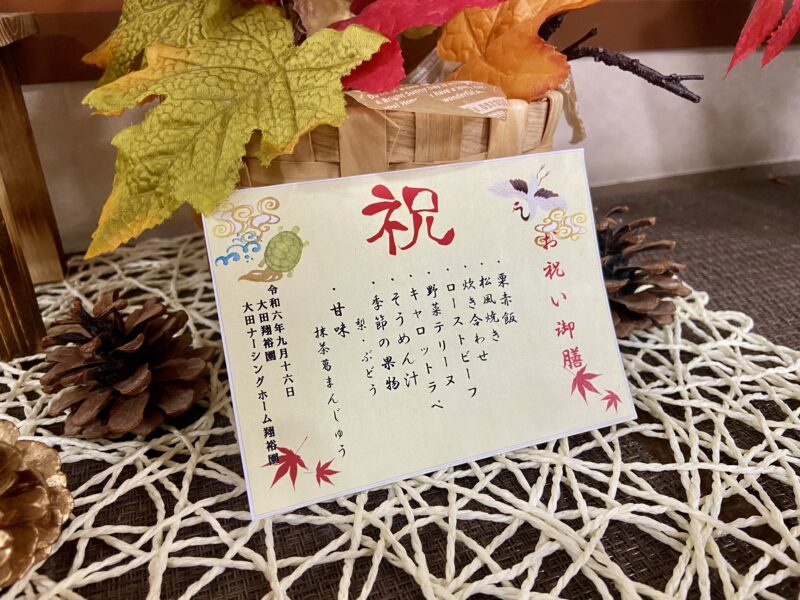 祝
お祝い御膳
・栗赤飯
・松風焼き
・炊き合わせ
・ローストビーフ
・野菜テリーヌ
・キャロットラペ
・そうめん汁
・季節の果物
梨・ぶどう
・甘味
抹茶葛まんじゅう
令和六年九月十六日
大田翔裕園
大田ナーシングホーム翔裕園